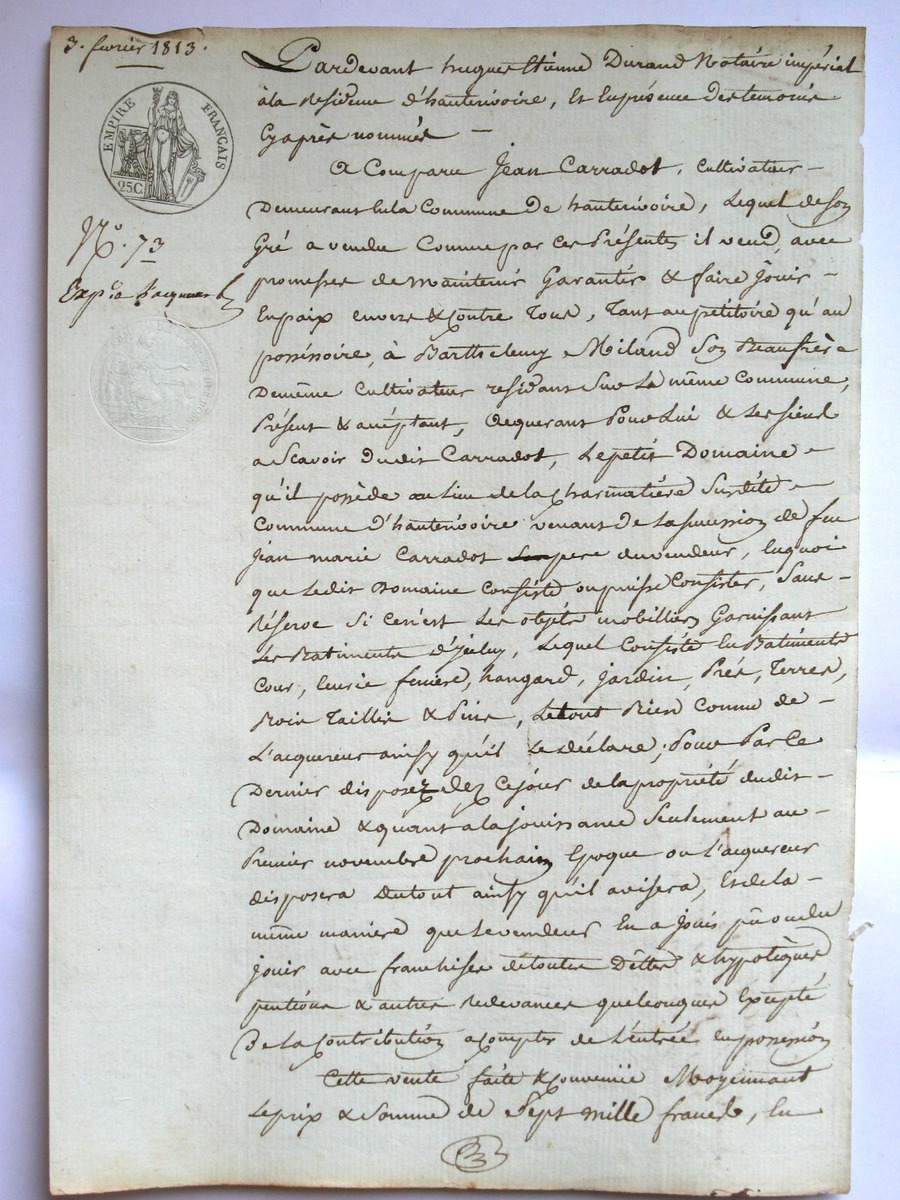 3. fevrier 1813.
EMPIRE FRANÇAIS
25C
N.o 73
Exp.on a Jacquemar
Pardevant hugues Etienne Durand Notaire impérial
à la Residence d'hauterivoire, Et Enprésence des temoins
Cyaprès nommés —
A Comparu Jean Carradot, Cultivateur —
Demeurant En la Commune De hauterivoire, Lequel de son
Gré a vendu Comme par Ces Présentes il vend, avec
promesses de Maintenir Garantir & faire Jouir —
En paix envers & Contre Tous, Tant au petitoire qu'au
possessoire, à Barthelemy Miland Son Beaufrère
Demême Cultivateur residant Sur La même Commune,
Présent & acceptant, Acquerant Pour Lui & Les siens
a Scavoir Dudit Carradot, Le petit Domaine —
qu'il possède au Lieu de la Charmatière Surdite —
Commune D'hauterivoire venant de La succession de feu
Jean marie Carradot pere du vendeur, En quoi
que Ledit Domaine Consiste ou puisse Consister, Sans —
Réserve Si Cen'est Les objets mobilliers Garnissant
Les Batiments D'jcelui, Lequel Consiste En Batiments
Cour, Ecurie feniere, hangard, Jardin, Prés, Terres,
Bois Taillis & Pins, Letout Bien Connu de —
L'acquereur ainsy qu'il Le déclare; Pour Par Ce
Dernier disposer Dez Cejour de la propriété dudit —
Domaine & quant a la jouissance Seulement au —
Premier novembre prochain Epoque ou L'acquereur
disposera Dutout ainsy qu'il avisera, Et de la —
même manière que Le vendeur En a Joui pû ou du
jouir avec franchises detoutes Dettes & hypotèques
pentions & autres Redevances quelconques Excepté
De La Contribution a Compter de L'entrée en possession
Cette vente faite & Convenüe Moyennant
Le prix & Somme de Sept mille francs, En